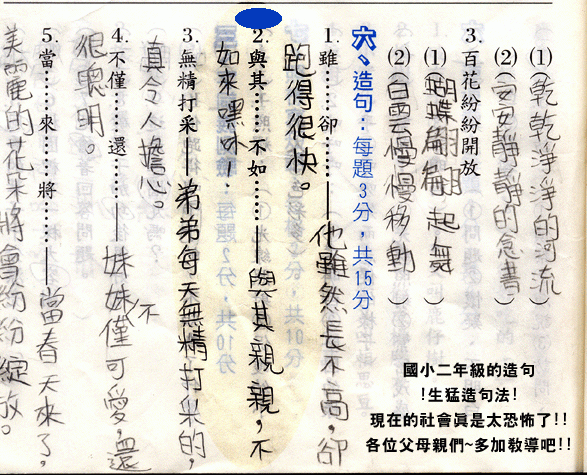 (1)(乾乾淨淨的河流)
(2)(安安靜靜的念書)
3.百花紛紛開放
(1)(蝴蝶翩翩起舞)
(2)(白雲慢慢移動)
六、造句:每題3分,共15分
1.雖……卻……——他雖然長不高,卻
跑得很快。
2.與其……不如……——與其親親,不
如來嘿咻!
3.無精打采——弟弟每天無精打采的,
真令人擔心。
4.不僅……還……——妹妹不僅可愛,還
很聰明。
5.當……來……將……——當春天來了,
美麗的花朵將會紛紛綻放。
國小二年級的造句
!生猛造句法!
現在的社會真是太恐怖了!!
各位父母親們~多加教導吧!!